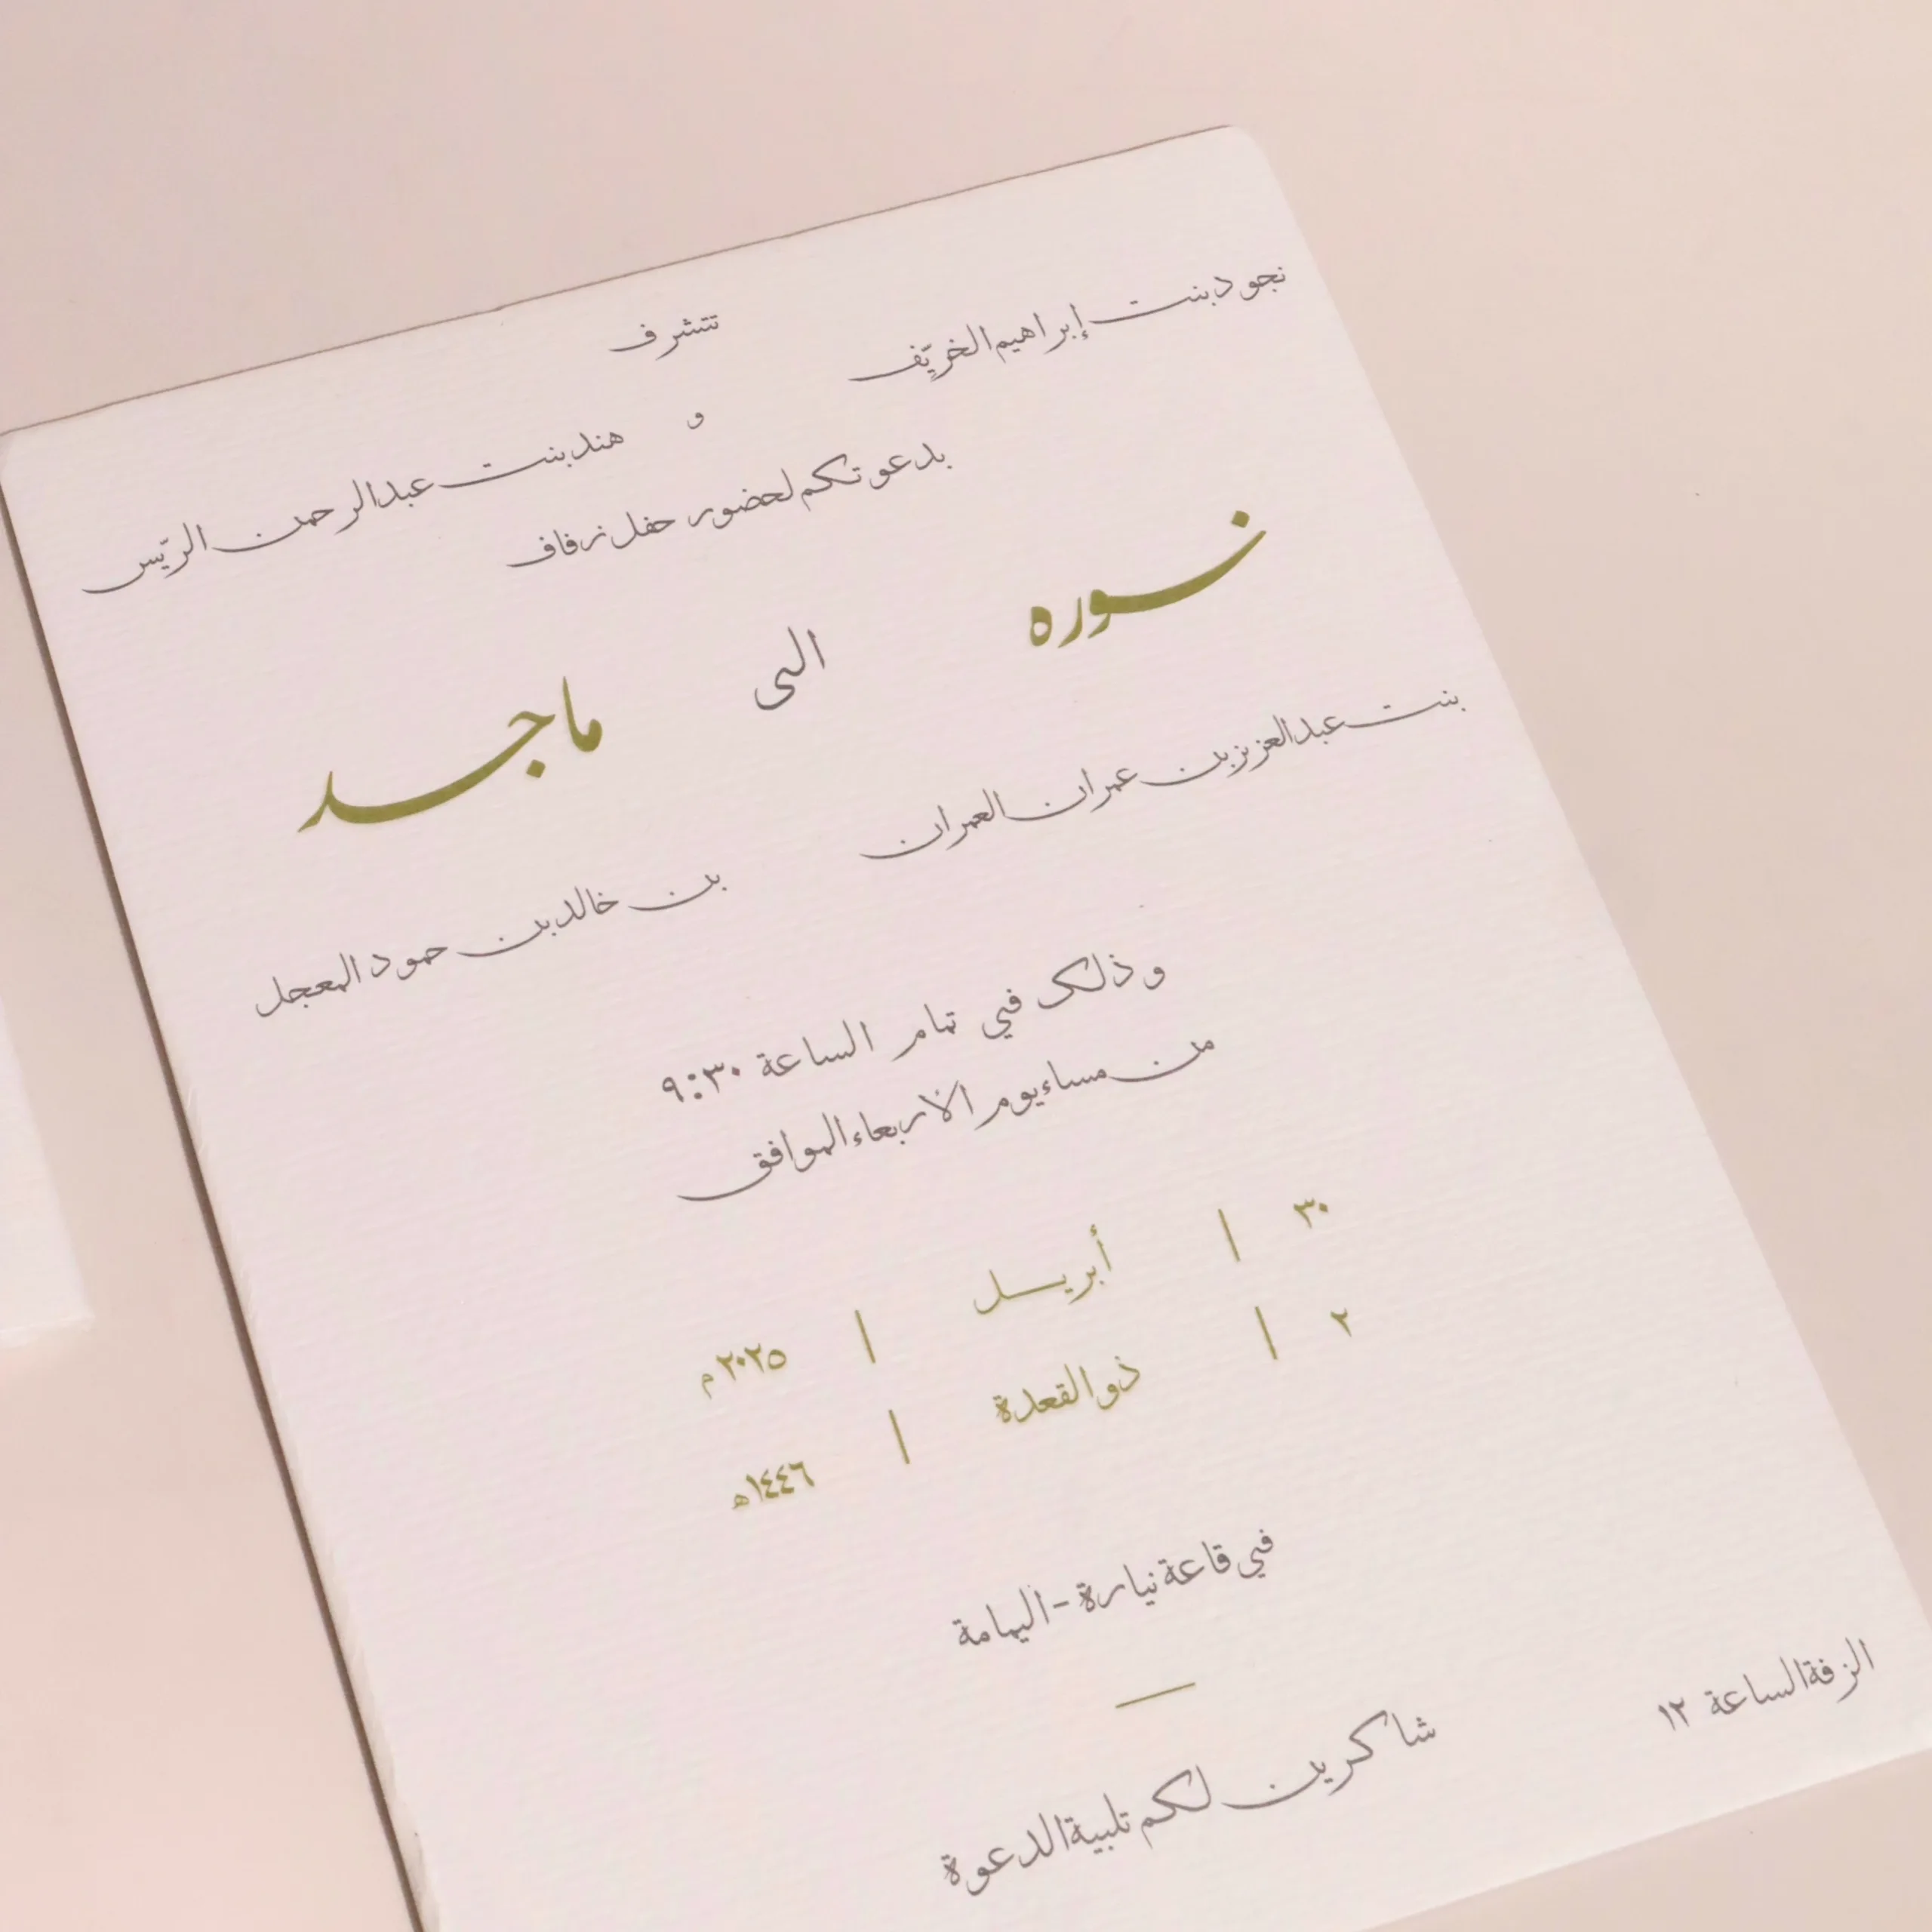 تتشرف
نجود بنت إبراهيم الخريّف و هند بنت عبدالرحمن الريّس
بدعوتكم لحضور حفل زفاف
نوره الى ماجد
بنت عبدالعزيز بن عمران العمران بن خالد بن حمود المعجل
وذلك في تمام الساعة ٩:٣٠
من مساء يوم الأربعاء الموافق
٣٠ | أبريل | ٢٠٢٥ م
٢ | ذو القعدة | ١٤٤٦ه
في قاعة نيارة - اليمامة
شاكرين لكم تلبية الدعوة
الزفة الساعة ١٢